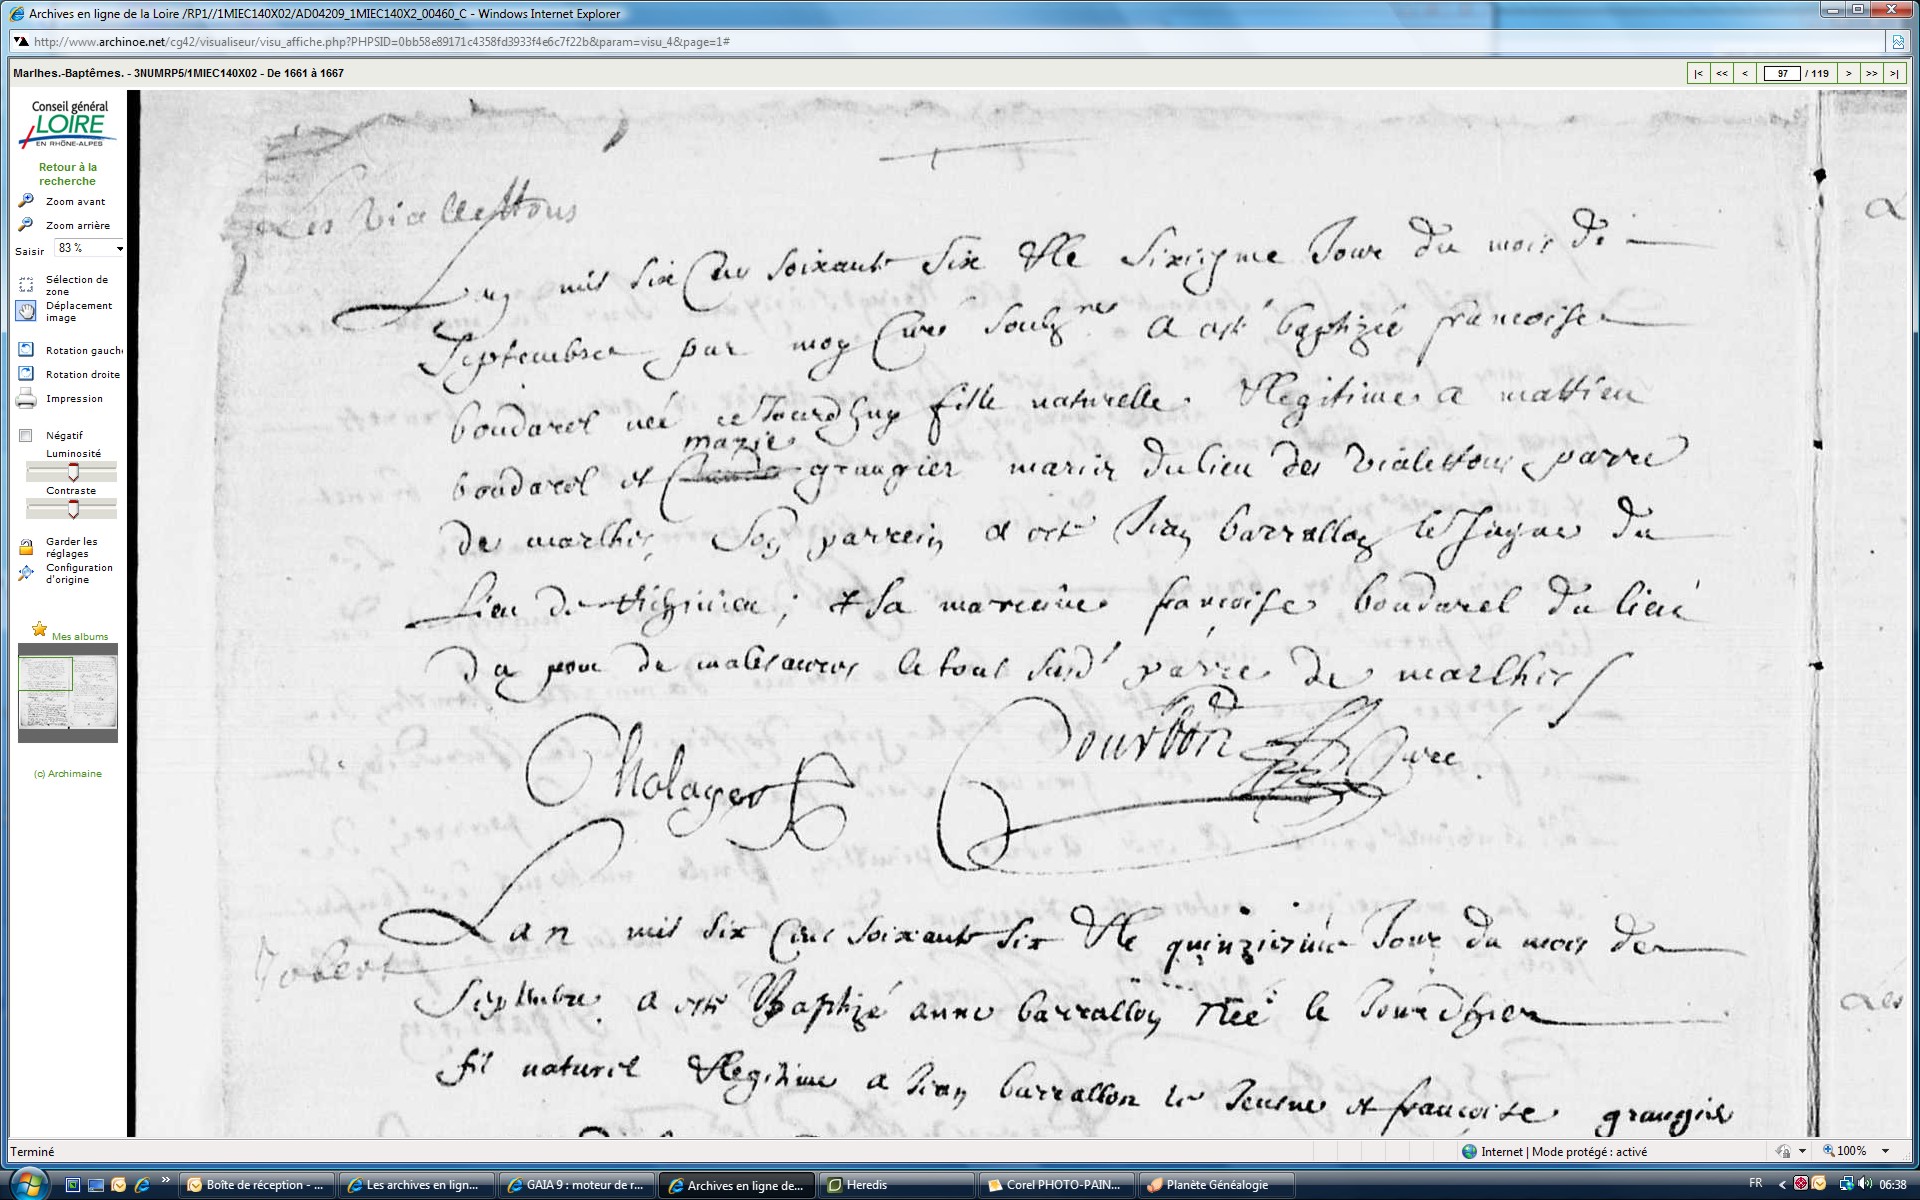 Archives en ligne de la Loire /RP1//1MIEC140X02/AD04209_1MIEC140X2_00460_C - Windows Internet Explorer
http://www.archinoe.net/cg42/visualiseur/visu_affiche.php?PHPSID=0bb58e89171c4358fd3933f4e6c7f22b&param=visu_4&page=1#
Marlhes.-Baptêmes. - 3NUMRP5/1MIEC140X02 - De 1661 à 1667
|< << < 97 / 119 > >> >|
Conseil général
LOIRE
EN RHÔNE-ALPES
Retour à la
recherche
Zoom avant
Zoom arrière
Saisir 83 %
Sélection de
zone
Déplacement
image
Rotation gauch
Rotation droite
Impression
Négatif
Luminosité
Contraste
Garder les
réglages
Configuration
d'origine
Mes albums
(c) Archimaine
Les Vialletons
Lan mil six Cens soixante six & le sixiesme Jour du mois de
Septembre par moy Curé soubz.nes a esté baptizée francoise
boudarel née ce Jourdhuy fille naturelle & legitime a mattieu
marie
boudarel et grangier mariés du lieu des vialettons parre
de marlhes, Son parrein a esté Jean barrallon le Jeune du
Lieu de ; & sa marreine francoise boudarel du lieu
du de malesaures le tout susd. parre de marlhes
Cholayer Dourbon Curé
Lan mil six Cens soixante six & le quinziesme Jour du mois de
Joberts
Septembre a esté Baptizé anne barrallon née le Jourdhier
fil naturel & legitime a Jean barrallon le Jeune et francoise grangier
Les
Terminé
Internet | Mode protégé : activé
100%
Boîte de réception - ...
Les archives en lign...
GAIA 9 : moteur de r...
Archives en ligne de...
Heredis
Corel PHOTO-PAIN...
Planète Généalogie
FR
06:38